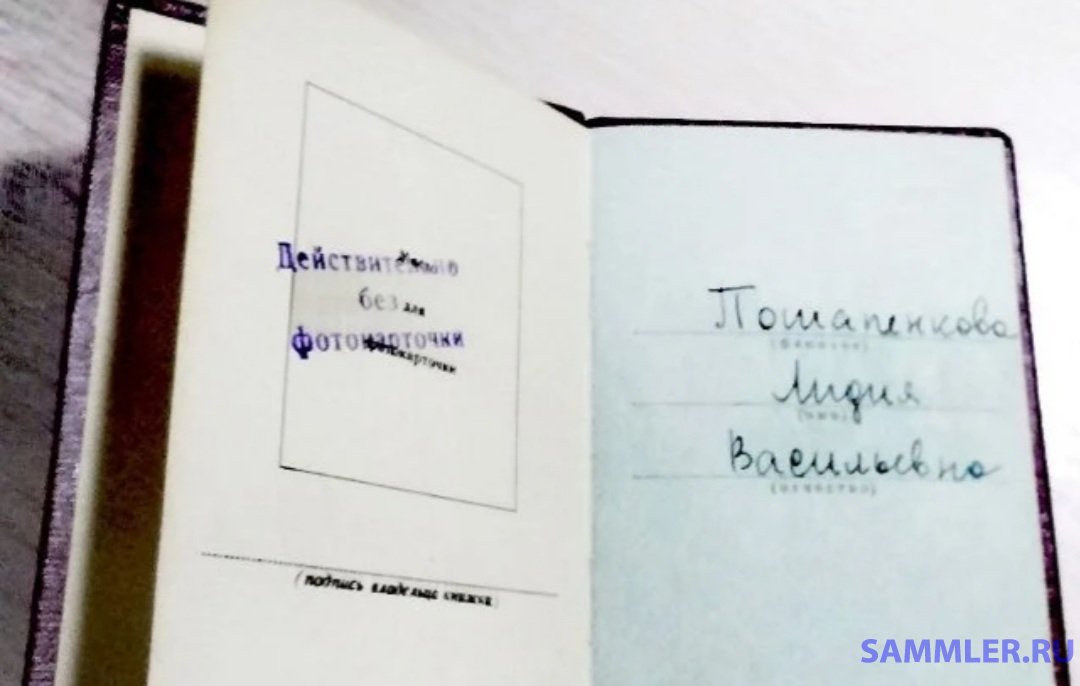 Действительно
без
фотокарточки
Место
для
фотокарточки
(подпись владельца книжки)
Пошапенкова
(фамилия)
Лидия
(имя)
Васильевна
(отчество)
SAMMLER.RU